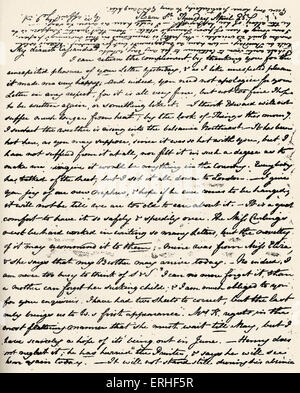 Sloane St Thursday April 25
My dearest Cassandra
I can return the compliment by thanking you for the
unexpected pleasure of your letter yesterday, & as I like unexpected pleasure,
it made me very happy; and indeed, you need not apologise for your
Letter in any respect, for it is all very fine, but not too fine I hope
to be written again, or something like it. I think Edward will not
suffer much longer from heat; by the look of Things this morng
I suspect the weather is rising into the balsamic Northeast. It has been
hot here, as you may suppose, since it was so hot with you, but I
have not suffered from it at all, nor felt it in such a degree as to
make me imagine it would be anything in the country. Everybody
has talked of the heat, but I set it all down to London. I give
you joy of our new nephew, & hope if he ever comes to be hanged,
it will not be till we are too old to care about it. It is a great
comfort to have it so safely & speedily over. The Miss Curlings
must be hard worked in writing so many letters, but the novelty
of it may recommend it to them; mine was from Miss Eliza,
& she says that my Brother may arrive today. No indeed, I
am never too busy to think of S&S. I can no more forget it, than
a mother can forget her sucking child; & I am much obliged to you
for your enquiries. I have had two sheets to correct, but the last
only brings us to W.s first appearance. Mrs K. regrets in the
most flattering manner that she must wait till May, but I
have scarcely a hope of its being out in June. Henry does
not neglect it; he has hurried the Printer, & says he will see
him again today. It will not stand still during his absence
alamy
ERHF5R